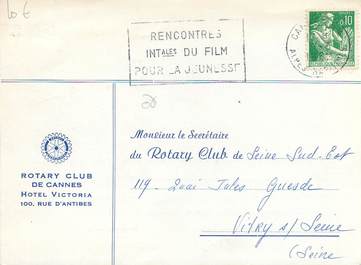 10 €
RENCONTRES
INTALES DU FILM
POUR LA JEUNESSE
0,10
20
Monsieur le Secrétaire
du Rotary Club de Seine Sud-Est
119 - Quai Jules Guesde
Vitry s/ Seine
(Seine
ROTARY CLUB
DE CANNES
HOTEL VICTORIA
100, RUE D'ANTIBES